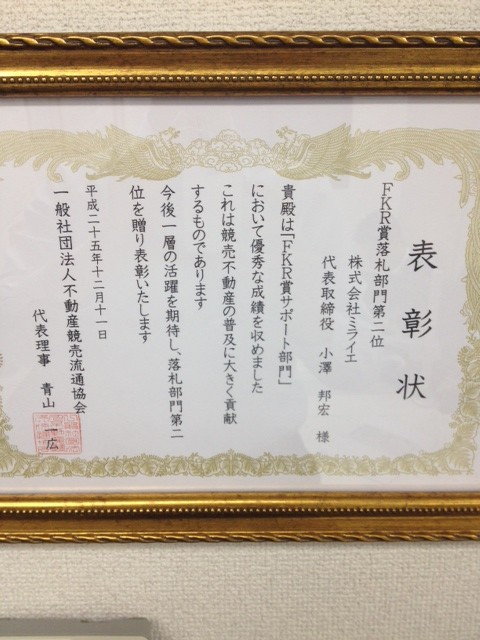 表彰状
FKR賞落札部門第二位
株式会社ミライエ
代表取締役 小澤 邦宏 様
貴殿は「FKR賞サポート部門」
において優秀な成績を収めました
これは競売不動産の普及に大きく貢献
するものであります
今後一層の活躍を期待し、落札部門第二
位を贈り表彰いたします
平成二十五年十二月十一日
一般社団法人不動産競売流通協会
代表理事 青山 一広